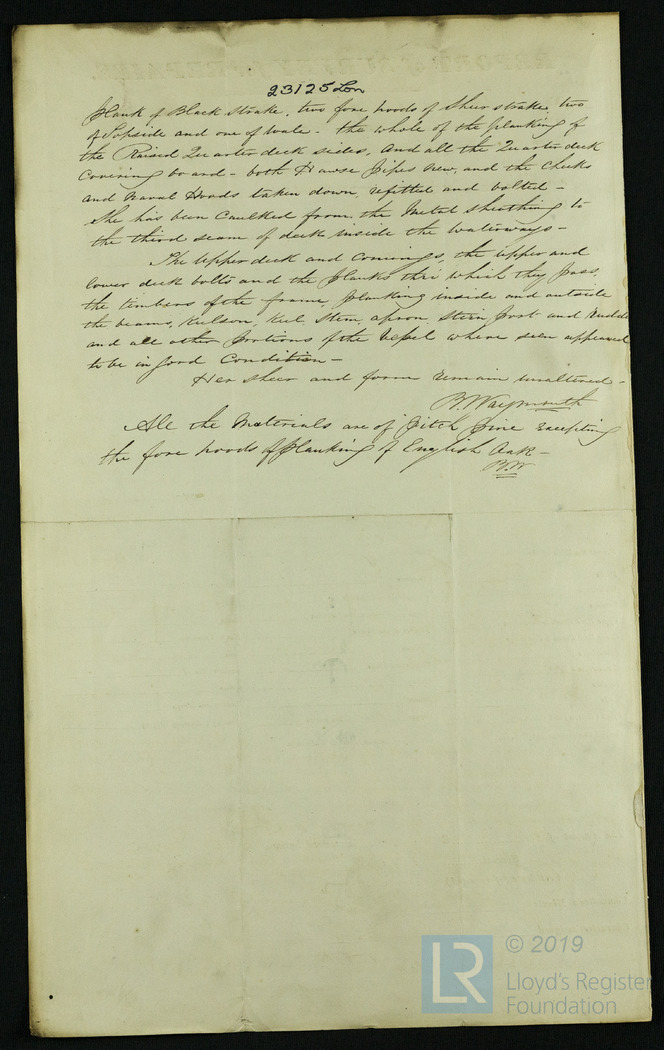 23125 Lon
plank of Black Strake, two fore hoods of Sheerstrake, two
of Topside and one of Wale - the whole of the planking of
the Raised Quarter deck sides, and all the Quarter deck
Covering board - both Hawse Pipes New, and the Cheeks
and Naval Hoods taken down, refitted and bolted -
She has been Caulked from the Metal Sheathing to
the third seam of deck inside the waterways -
The Upper deck and Comings, the upper and
lower deck bolts and the planks thro which they pass,
the timbers of the frame, planking inside and outside
the beams, Keelson, Keel, Stem, apron, Stern post and Rudder
and all other portions of the Vessel where seen appeared
to be in good Condition -
Her Sheer and form remain unaltered -
B. Waymouth
All the Materials are of Pitch Pine excepting
the fore hoods of planking of English Oak -
B.W
© 2019
LR
Lloyd's Register
Foundation